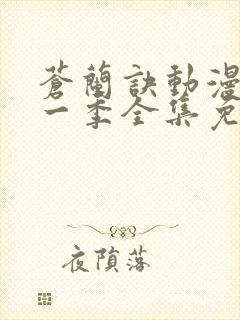 蒼蘭訣動漫
一季全集免
夜隕落